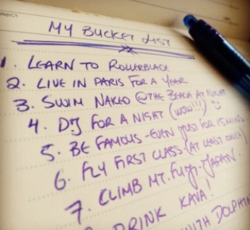 MY BUCKET LIST
1. LEARN TO ROLLERBLADE
2. LIVE IN PARIS FOR A YEAR
3. SWIM NAKED @ THE BEACH AT NIGHT
4. DJ FOR A NIGHT (WOW!!)
5. BE FAMOUS - EVEN JUST FOR 15 MINS
6. FLY FIRST CLASS (AT LEAST ONCE)
7. CLIMB MT. FUJI - JAPAN
DRINK KAVA!
WITH DOLPHIN